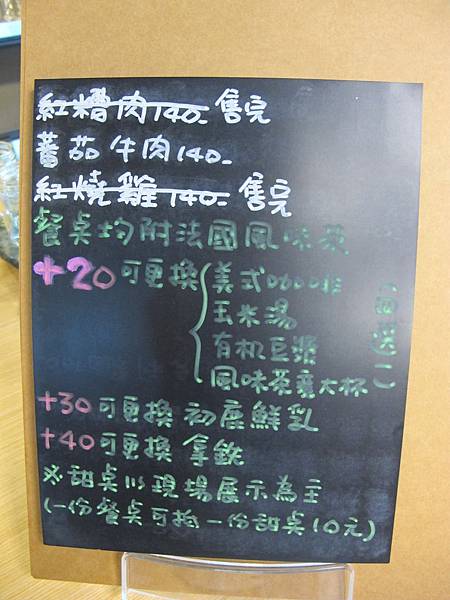 紅糟肉140- 售完
蕃茄牛肉140-
紅燒雞140- 售完
餐桌均附法國風味茶
+20可更換 美式咖啡
玉米湯
有机豆漿
風味茶裏大杯
(四選一)
+30可更換 初鹿鮮乳
+40可更換 拿鉄
※甜桌以現場展示為主
(一份餐桌可拘一份甜桌10元)